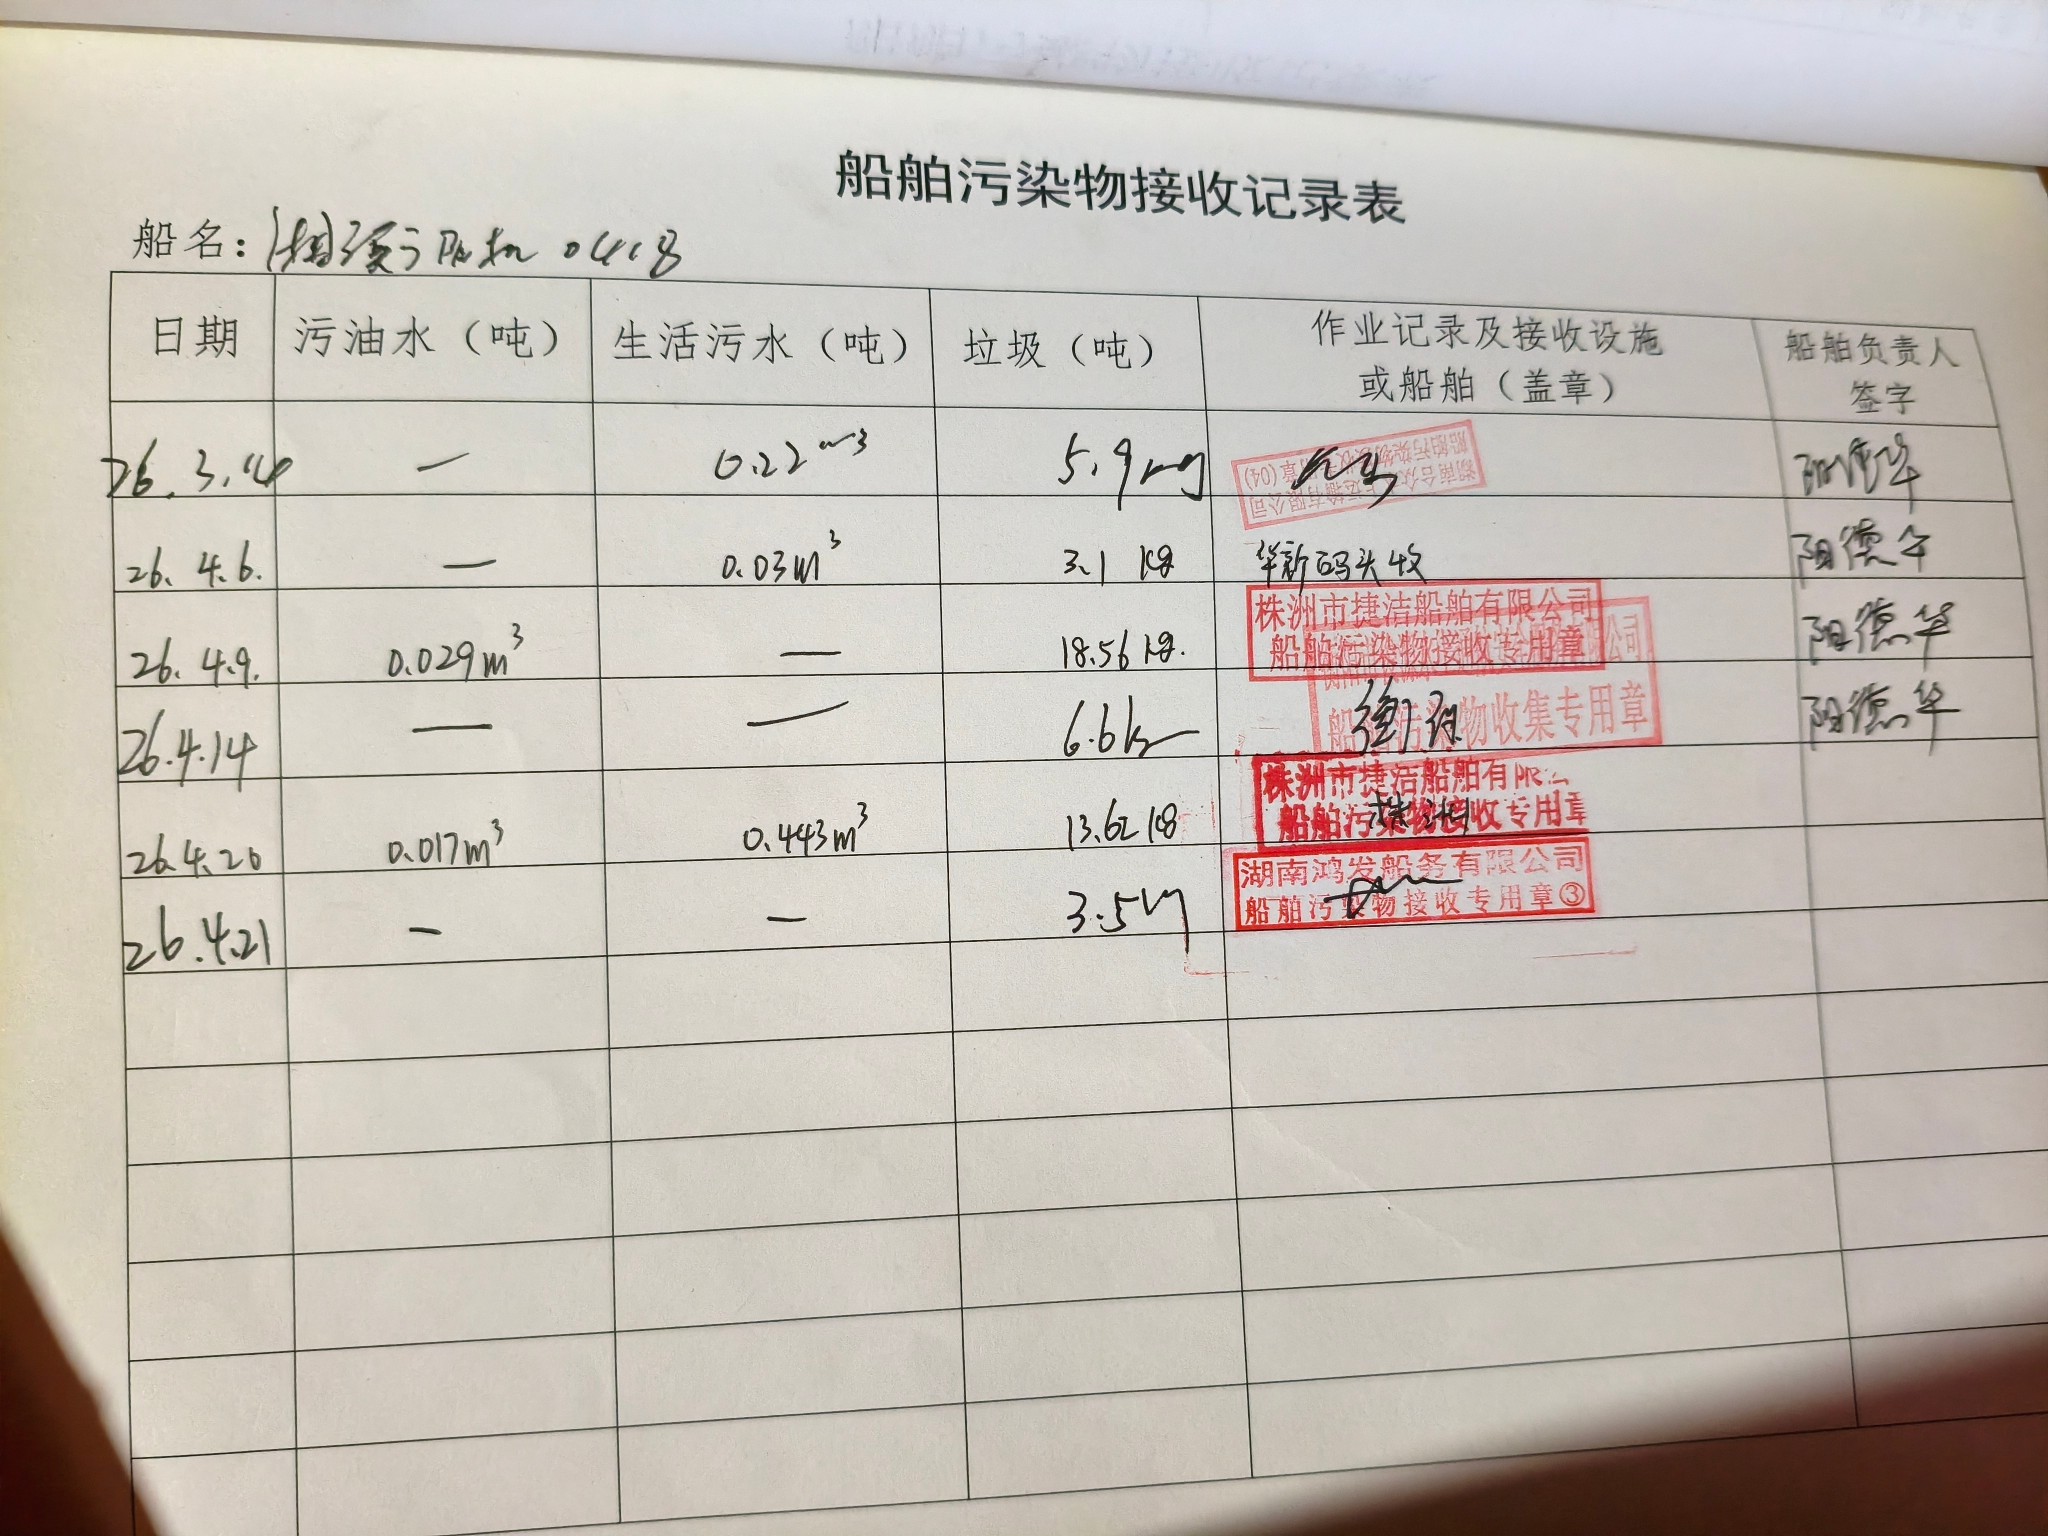 船舶污染物接收记录表
船名： 0418
日期 污油水（吨） 生活污水（吨） 垃圾（吨） 作业记录及接收设施 船舶负责人
或船舶（盖章） 签字
26.3.14 — 0.22m³ 5.9kg 阳德华
船舶污染物接收 章(04)
湖南合众 运输有限公司
26.4.6. — 0.03m³ 3.1 kg 华新码头收 阳德华
26.4.9. 0.029m³ — 18.56 kg. 株洲市捷洁船舶有限公司 阳德华
船舶污染物接收专用章
26.4.14 — — 6.6kg 船舶污染物收集专用章 阳德华
26.4.20 0.017m³ 0.443m³ 13.62 kg 株洲市捷洁船舶有限
船舶污染物接收专用章
株洲
26.4.21 — — 3.5kg 湖南鸿发船务有限公司
船舶污染物接收专用章③